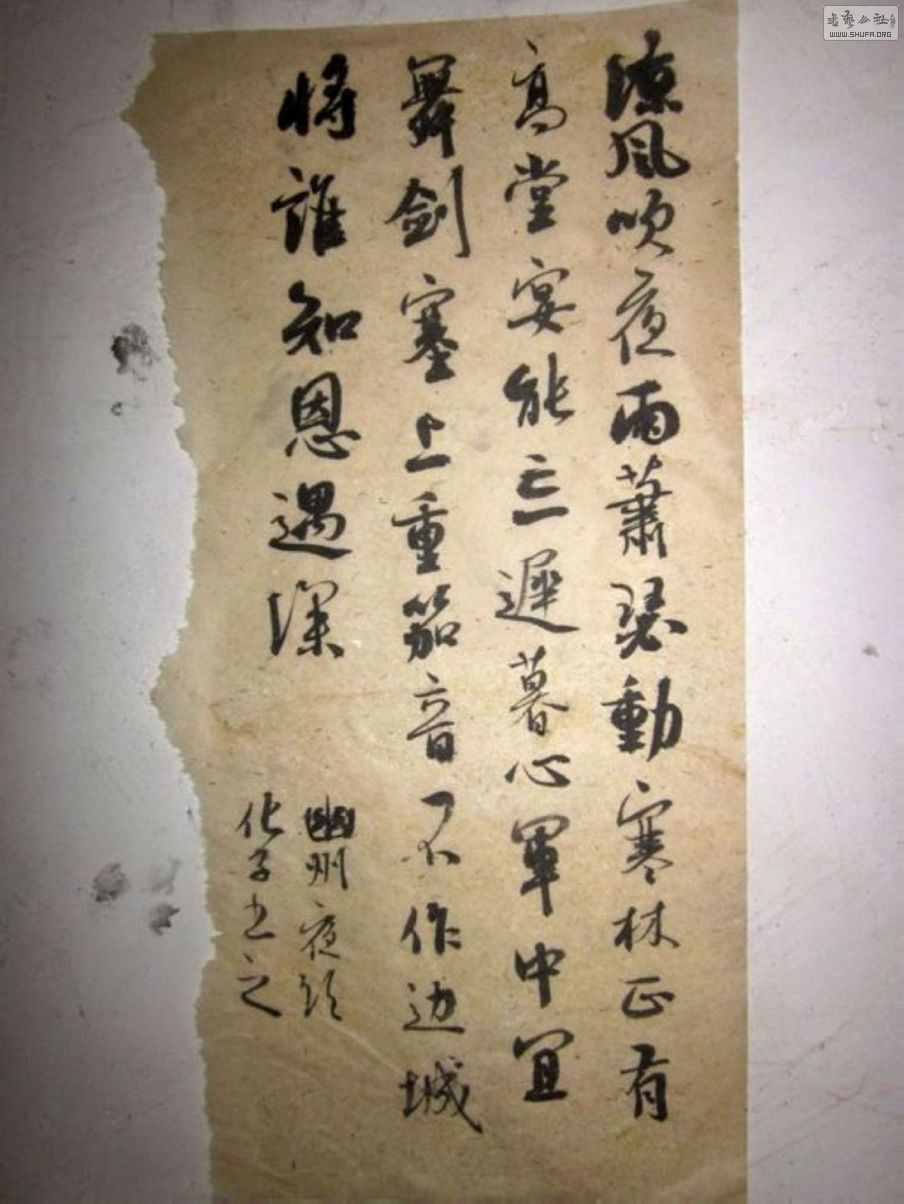 凉风吹夜雨萧瑟動寒林正有
高堂宴能亡遲暮心軍中宜
舞剑塞上重笳音不作边城
将誰知恩遇深
幽州夜
化子书之
书艺公社
WWW.SHUFA.ORG